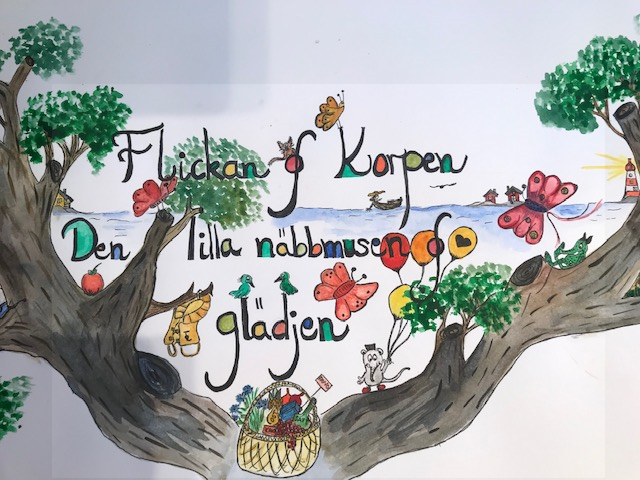 Flickan & Korpen
Den lilla näbbmusen &
glädjen